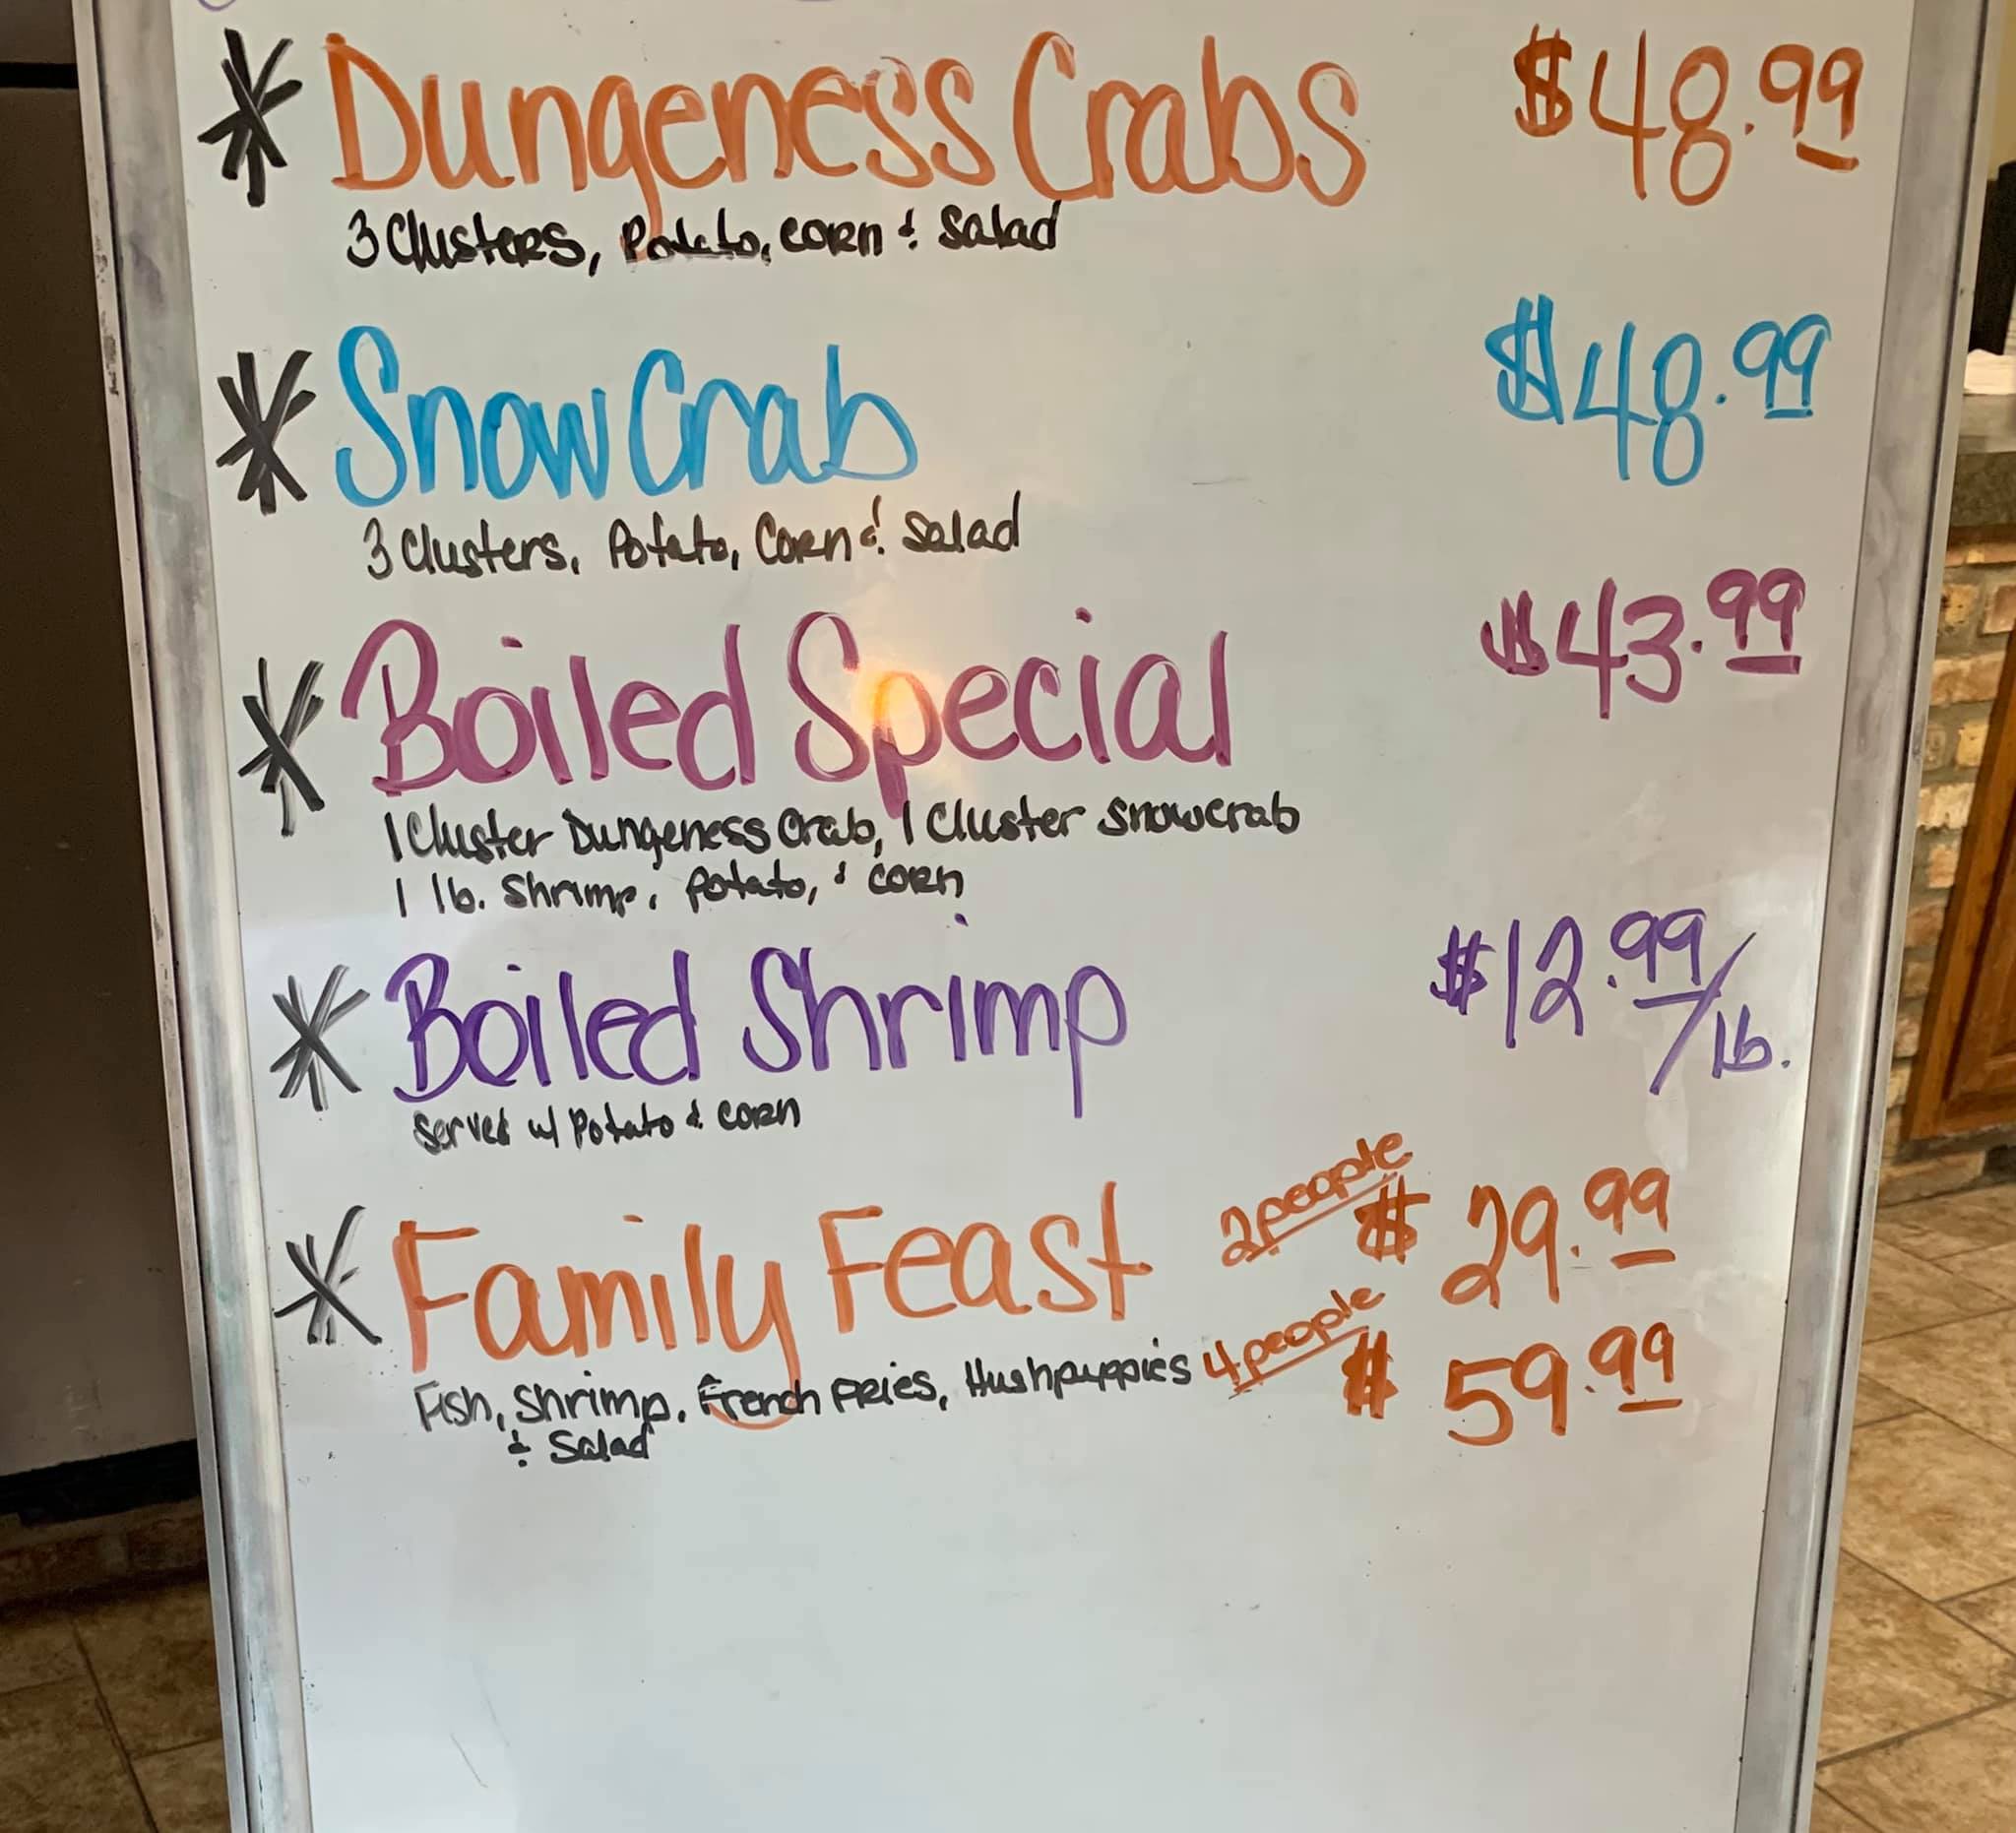 * Dungeness Crabs $48.99
3 Clusters, Potato, corn & Salad
* Snow Crab $48.99
3 Clusters, Potato, Corn & Salad
* Boiled Special $43.99
1 Cluster Dungeness Crab, 1 Cluster Snowcrab
1 lb. Shrimp, Potato, & corn
* Boiled Shrimp $12.99/lb.
Served w/ Potato & corn
* Family Feast 2 people $29.99
Fish, Shrimp, French Fries, Hushpuppies 4 people $59.99
& Salad